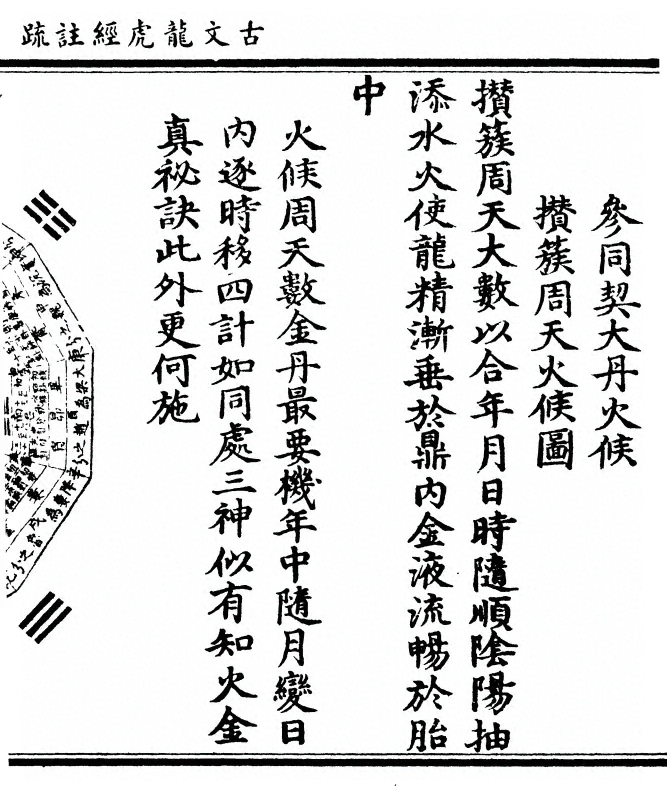 古文龍虎經註疏
參同契大丹火候
攅簇周天火候圖
攅簇周天大數以合年月日時隨順陰陽抽
添水火使龍精漸垂於鼎內金液流暢於胎
中
火候周天數金丹最要機年中隨月變日
內逐時移四計如同處三神似有知火金
真祕訣此外更何施